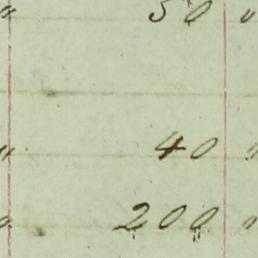 " 50 "
" 40 "
" 200 "